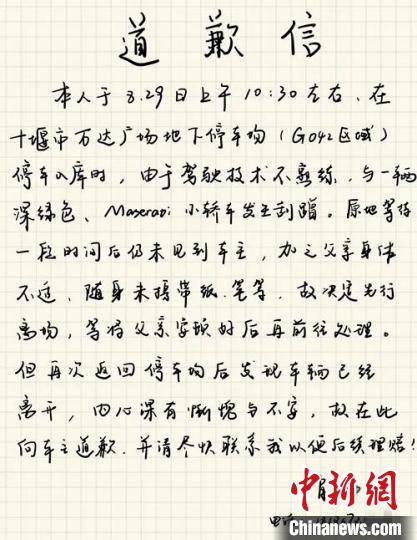 道歉信
本人于8.29日上午10:30左右,在
十堰市万达广场地下停车场(G042区域)
停车入库时,由于驾驶技术不熟练,与一辆
深绿色、Maserati小轿车发生刮蹭。原地等待
一段时间后仍未见到车主,加之父亲身体
不适、随身未携带纸、笔等,故决定先行
离场,等将父亲安顿好后再前往处理。
但再次返回停车场后发现车辆已经
离开,内心深有惭愧与不安,故在此
向车主道歉.并请尽快联系我以便后续理赔!
中新网
Chinanews.com